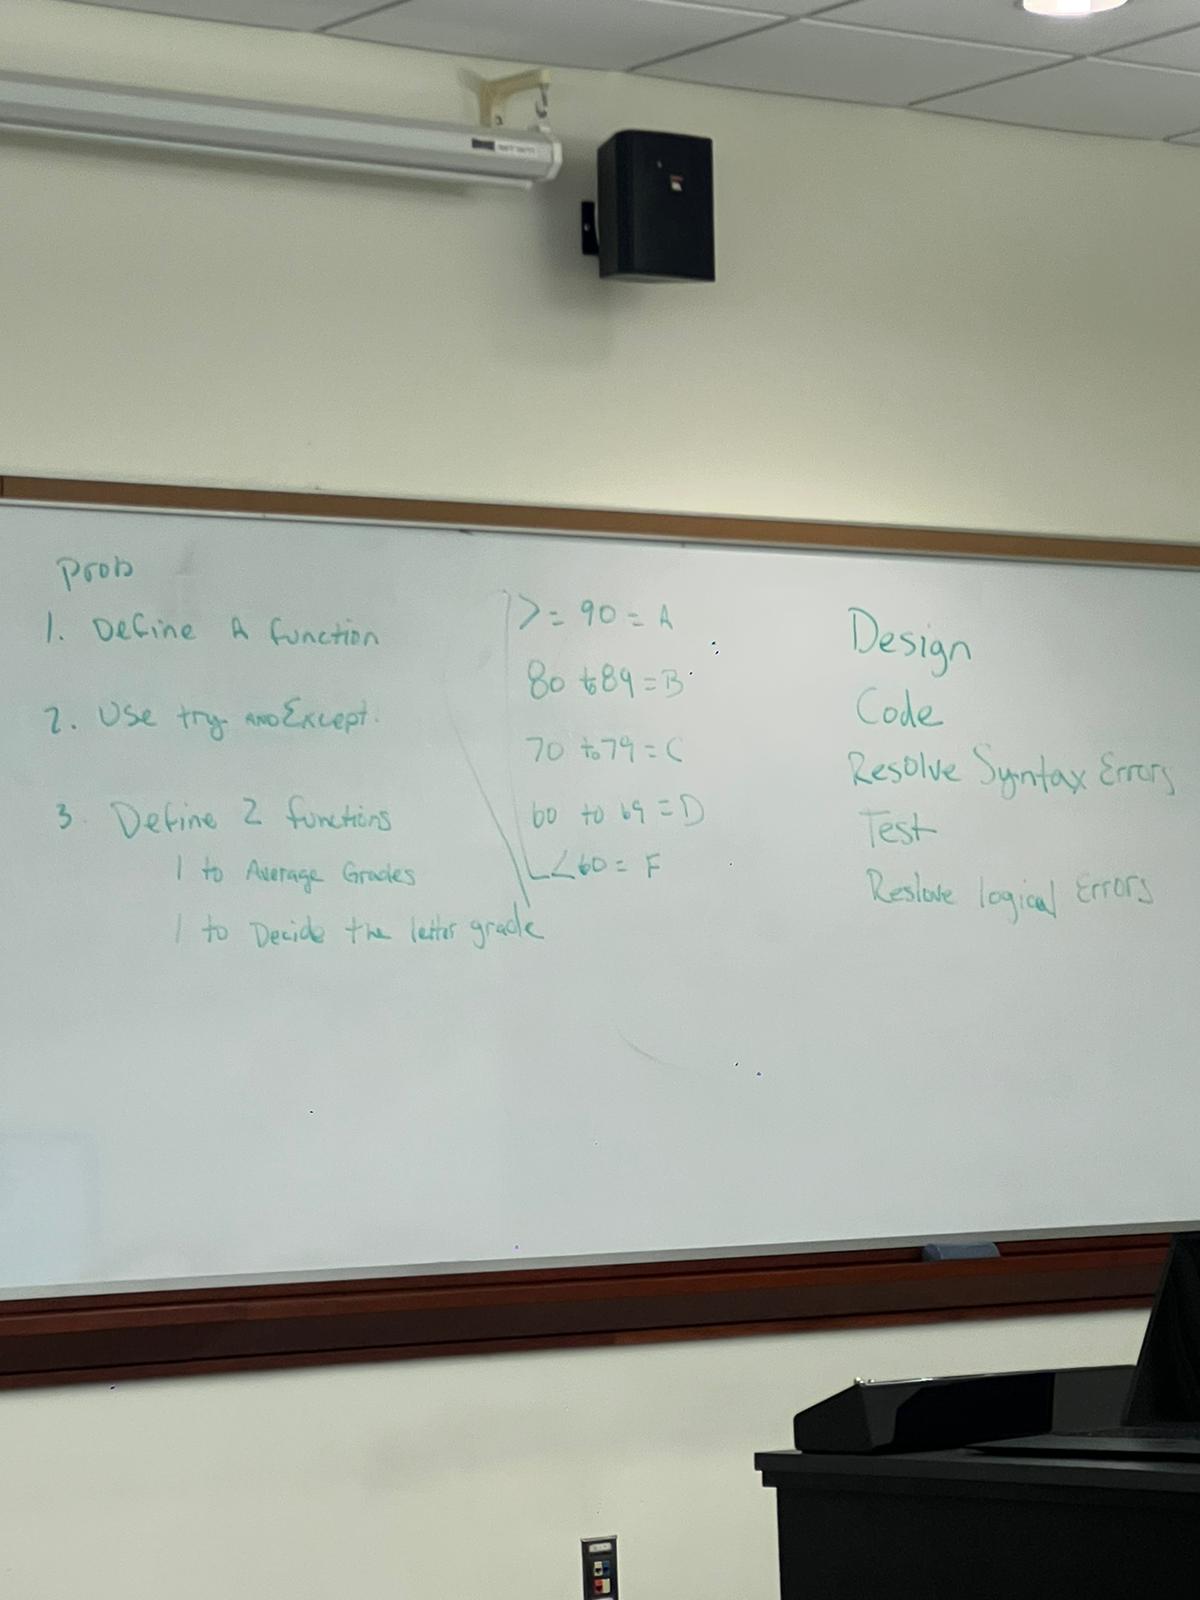 Prob
1. Define A function
2. Use try AND Except.
3. Define 2 functions
1 to Average Grades
1 to Decide the letter grade
>= 90 = A
80 to 89 = B
70 to 79 = C
60 to 69 = D
<60 = F
Design
Code
Resolve Syntax Errors
Test
Reslove logical Errors